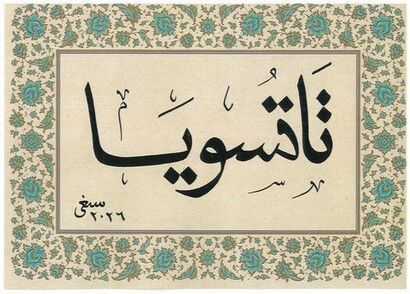 تاتسويا
٢٠٢٦